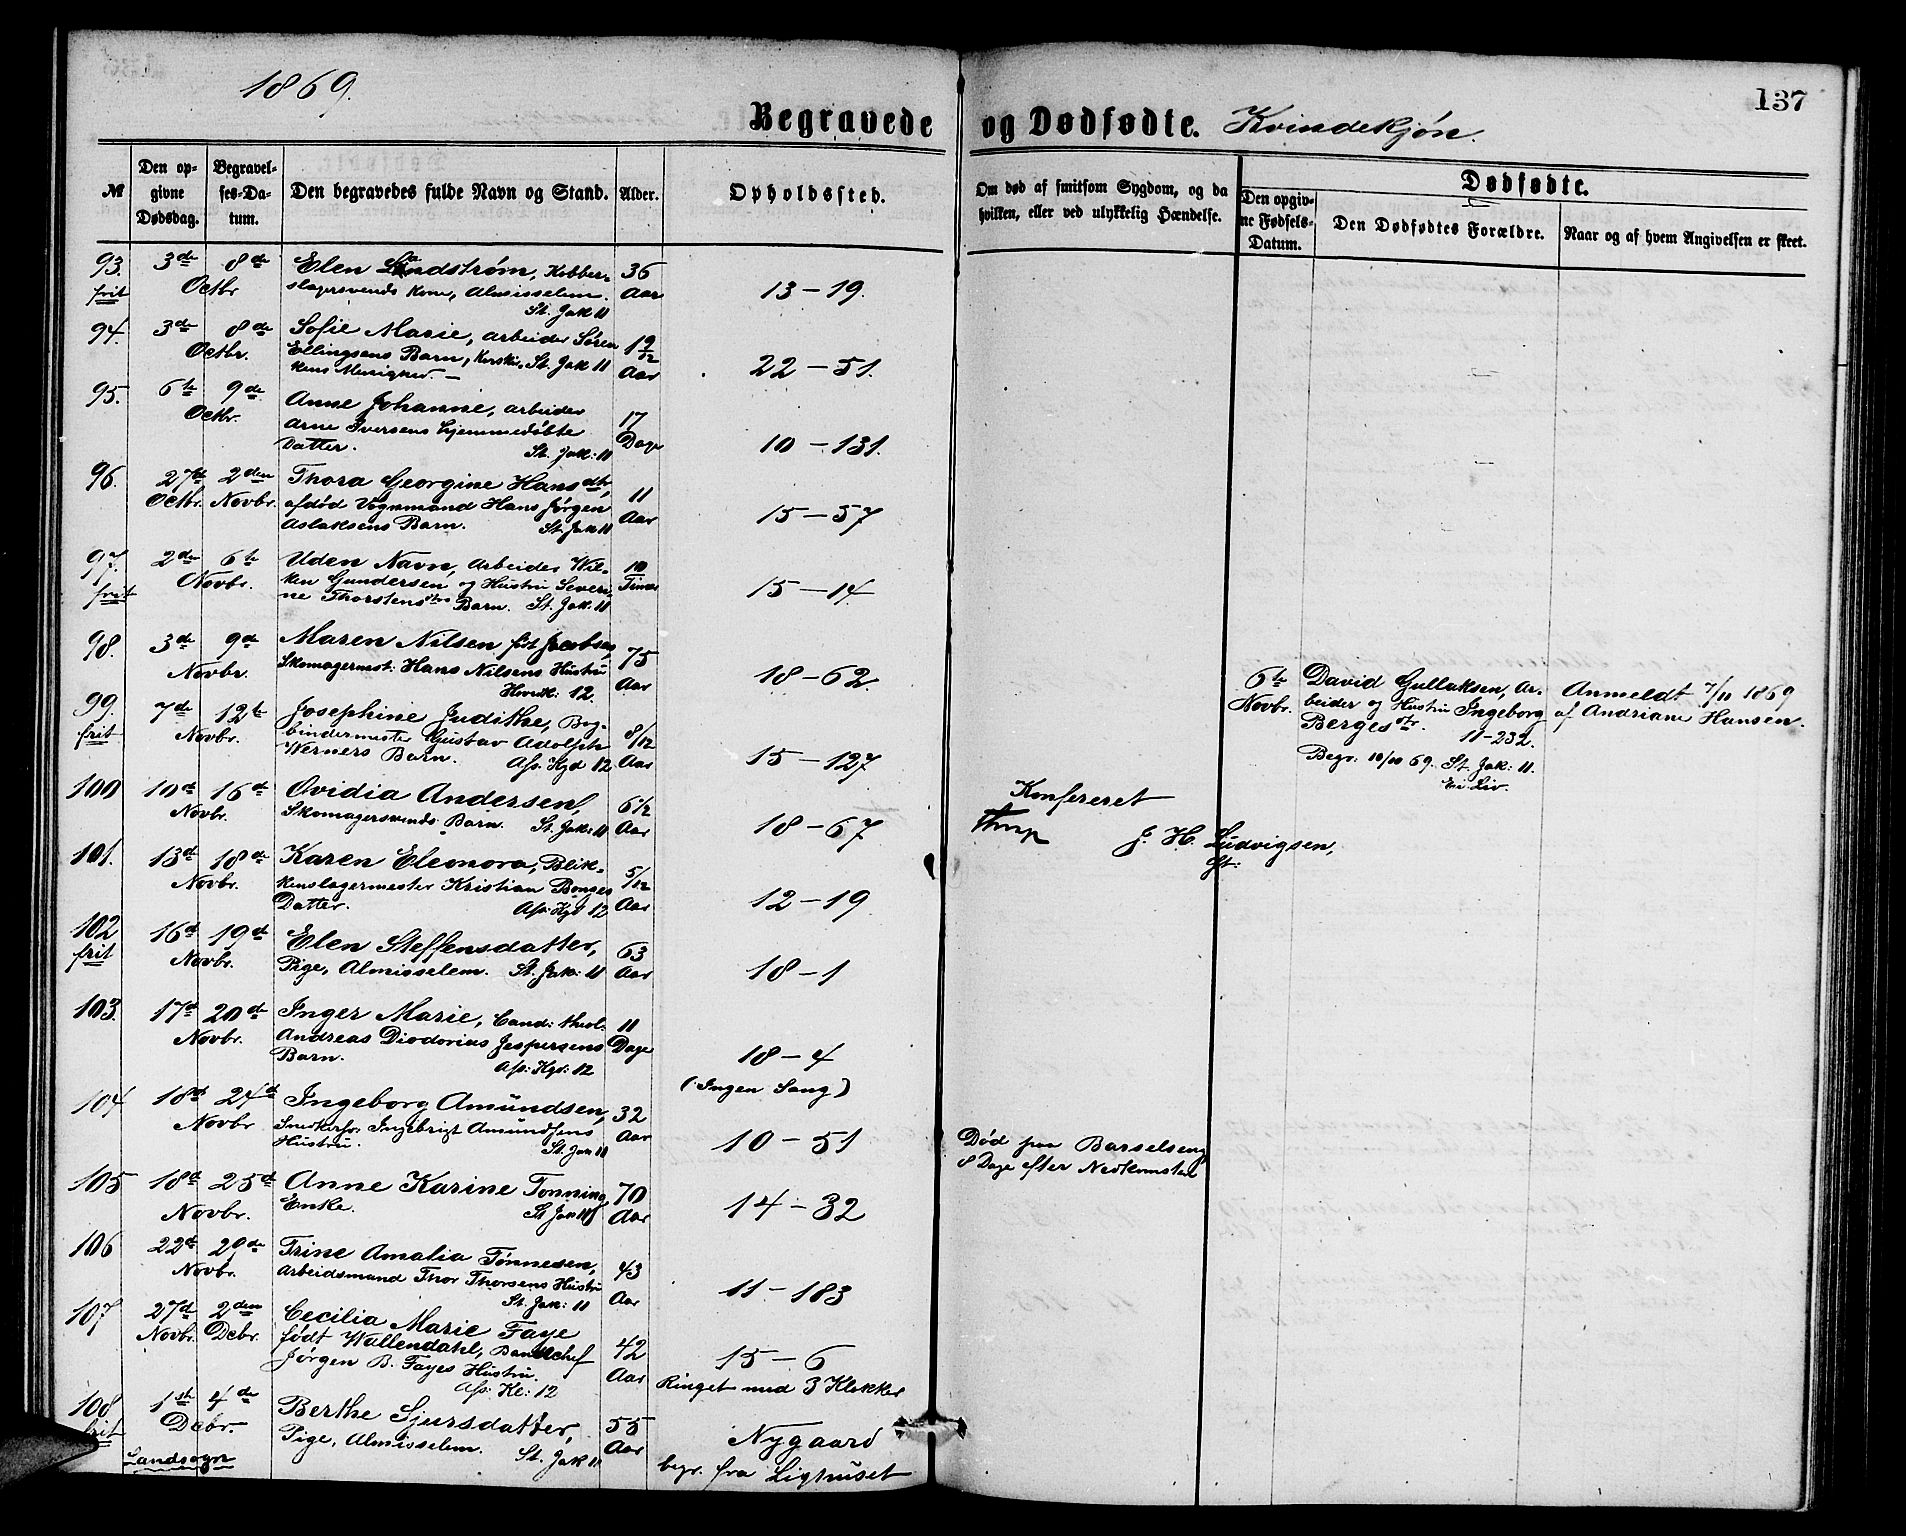 1869.
137
Begravede og Dødfødte. Kvindekjøn.
№
Den opgivne Dødsdag.
Begravelses-Datum.
Den begravedes fulde Navn og Stand.
Alder.
Opholdssted.
Om død af smitsom Sygdom, og da hvilken, eller ved ulykkelig Hændelse.
Dødfødte.
Den opgivne Fødsels-Datum.
Den Dødfødtes Forældre.
Naar og af hvem Angivelsen er skeet.
93. frit 3de 8de Octbr
Elen Lindstrøm, Kobber-
slagersvends Kone, Almisselem.
St. Jak 11
36 Aar
13-19.
94. 3de 8de Octbr.
Sofie Marie, arbeider Søren
Ellingsens Barn, St. Jak 11
Aar
22-51.
95. 6te 9de Octbr.
Anne Johanne, arbeider
Arne Iversens hjemmedøbte
Datter. St. Jak: 11
17 Dage
10-131.
96. 27de Octbr. 2den Novbr.
Thora Georgine Hansdtr,
afdød Vognmand Hans Jørgen
Aslaksens Barn. St. Jak 11
11 Aar
15-57
97. frit 2den 6te Novbr.
Uden Navn, Arbeider Wil-
ken Gundersen og Hustru Severi-
ne Thorstensdtrs Barn. St. Jak. 11
10 Timer
15-14.
98. 3de 9de Novbr.
Maren Nilsen født Jacobsen,
Skomagermst: Hans Nilsens Hustru
12.
75 Aar
18-62.
99. frit 7de 12te Novbr.
Josephine Judithe, Bog-
bindermester Gustav Adolph
Werners Barn. Ass. Kgd 12
8/12 Aar
15-127
6te Novbr.
David Gullaksen, Ar-
beider og Hustru Ingeborg
Bergesdtr. 11-232.
Begr: 10/10 69. St. Jak: 11.
Ei Liv.
Anmeldt 7/11 1869
af Andriane Hansen.
100 10de 16de Novbr.
Ovidia Andersen,
Skomagersvends Barn. St. Jak: 11
6 1/2 Aar
18-67
Konfereret
J. H. Ludvigsen,
101. 13de 18de Novbr.
Karen Eleonora, Blik-
kenslagermester Kristian Bonges
Datter. Ass: Kgd 12
5/12 Aar
12-19
102 frit 16de 19de Novbr.
Elen Steffensdatter,
Pige, Almisselem. St. Jak: 11
63 Aar
18-1
103. 17de 20de Novbr.
Inger Marie, Cand: theol:
Andreas Diodorius Jespersens
Barn. Ass: Kgd: 12
11 Dage
18-4
(Ingen Sang)
104 18de 24de Novbr
Ingeborg Amundsen,
Snedkersv. Ingebrigt Amundsens
Hustru. St. Jak 11
32 Aar
10-51
Død paa Barselseng
8 Dage efter Nedkomsten
105 18de 25de Novbr.
Anne Karine Tonning,
Enke. St Jak 11
70 Aar
14-32
106 22de 29de Novbr.
Trine Amalia Tønnesen,
Arbeidsmand Thor Thorsens Hustru
St. Jak: 11
43 Aar
11-183
107 27de Novbr. 2den Debr.
Cecilia Marie Faye
født Wallendahl, Bankchef
Jørgen B. Fayes Hustru.
Ass. Kl: 12
42 Aar
15-6
Ringet med 3 Klokker
108 frit 1ste 4de Debr.
Landsogn
Berthe Sjursdatter,
Pige, Almisselem. St. Jak 11
55 Aar
Nygaard
begr. fra Lighuset